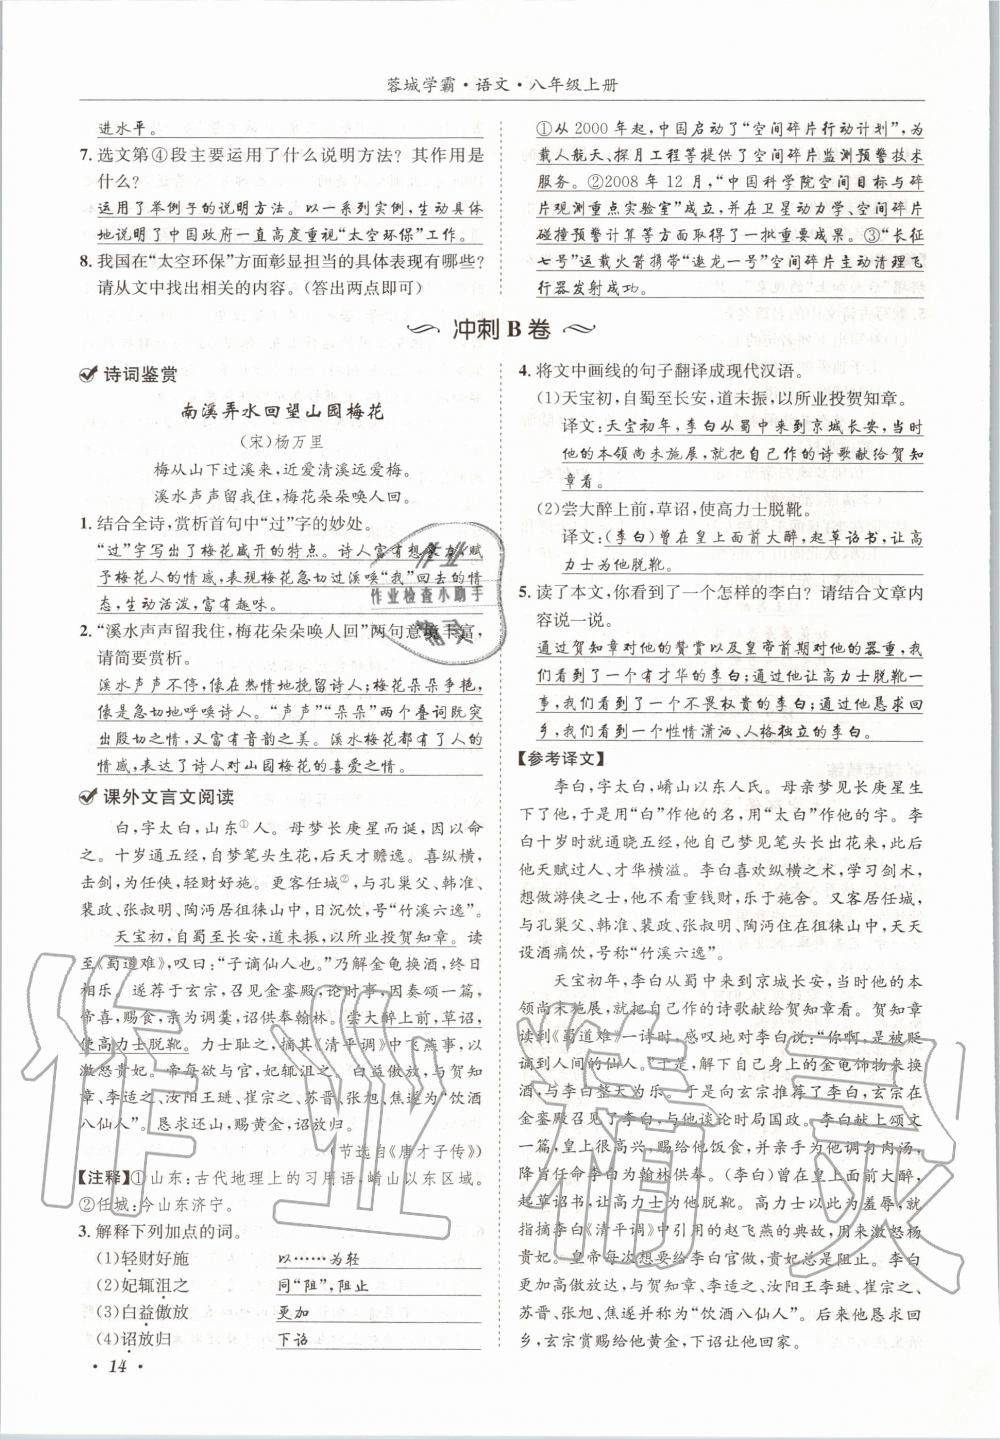 蓉城学霸·语文·八年级上册
进水平。
7. 选文第④段主要运用了什么说明方法？其作用是
什么？
运用了举例子的说明方法。以一系列实例，生动具体
地说明了中国政府一直高度重视“太空环保”工作。
8. 我国在“太空环保”方面彰显担当的具体表现有哪些？
请从文中找出相关的内容。（答出两点即可）
①从 2000 年起，中国启动了“空间碎片行动计划”，为
载人航天、探月工程等提供了空间碎片监测预警技术
服务。②2008 年 12 月，“中国科学院空间目标与碎
片观测重点实验室”成立，并在卫星动力学、空间碎片
碰撞预警计算等方面取得了一批重要成果。③“长征
七号”运载火箭携带“遨龙一号”空间碎片主动清理飞
行器发射成功。
冲刺 B 卷
诗词鉴赏
南溪弄水回望山园梅花
（宋）杨万里
梅从山下过溪来，近爱清溪远爱梅。
溪水声声留我住，梅花朵朵唤人回。
1. 结合全诗，赏析首句中“过”字的妙处。
“过”字写出了梅花盛开的特点。诗人富有想象力，赋
予梅花人的情感，表现梅花过溪唤“我”回去的情
态，生动活泼，富有趣味。
2. “溪水声声留我住，梅花朵朵唤人回”两句意境丰富，
请简要赏析。
溪水声声不停，像在热情地挽留诗人；梅花朵朵争艳，
像是急切地呼唤诗人。“声声”“朵朵”两个叠词既突
出殷切之情，又富有音韵之美。溪水梅花都有了人的
情感，表达了诗人对山园梅花的喜爱之情。
课外文言文阅读
白，字太白，山东①人。母梦长庚星而诞，因以命
之。十岁通五经，自梦笔头生花，后天才赡逸。喜纵横，
击剑，为任侠，轻财好施。更客任城②，与孔巢父、韩准、
裴政、张叔明、陶沔居徂徕山中，日沉饮，号“竹溪六逸”。
天宝初，自蜀至长安，道未振，以所业投贺知章。读
至《蜀道难》，叹曰：“子谪仙人也。”乃解金龟换酒，终日
相乐。遂荐于玄宗，召见金銮殿，论时事，因奏颂一篇，
帝喜，赐食，亲为调羹，诏供奉翰林。尝大醉上前，草诏，
使高力士脱靴。力士耻之，摘其《清平调》中飞燕事，以
激怒贵妃。帝每欲与官，妃辄沮之。白益傲放，与贺知
章、李适之、汝阳王琎、崔宗之、苏晋、张旭、焦遂为“饮酒
八仙人”。恳求还山，赐黄金，诏放归。
（节选自《唐才子传》）
【注释】①山东：古代地理上的习用语，崤山以东区域。
②任城：今山东济宁。
3. 解释下列加点的词。
(1)轻财好施 以……为轻
(2)妃辄沮之 同“阻”，阻止
(3)白益傲放 更加
(4)诏放归 下诏
4. 将文中画线的句子翻译成现代汉语。
(1)天宝初，自蜀至长安，道未振，以所业投贺知章。
译文：天宝初年，李白从蜀中来到京城长安，当时
他的本领尚未施展，就把自己作的诗歌献给贺知
章看。
(2)尝大醉上前，草诏，使高力士脱靴。
译文：（李白）曾在皇上面前大醉，起草诏书，让高
力士为他脱靴。
5. 读了本文，你看到了一个怎样的李白？请结合文章内
容说一说。
通过贺知章对他的赞赏以及皇帝前期对他的器重，我
们看到了一个有才华的李白；通过他让高力士脱靴一
事，我们看到了一个不畏权贵的李白；通过他恳求回
乡，我们看到一个性情潇洒、人格独立的李白。
【参考译文】
李白，字太白，崤山以东人氏。母亲梦见长庚星生
下了他，于是用“白”作他的名，用“太白”作他的字。李
白十岁时就通晓五经，自己梦见笔头上长出花来，此后
他天赋过人、才华横溢。李白喜欢纵横之术，学习剑术，
想做游侠之士，他不看重钱财，乐于施舍。又客居任城，
与孔巢父、韩准、裴政、张叔明、陶沔住在徂徕山中，天天
设酒痛饮，号称“竹溪六逸”。
天宝初年，李白从蜀中来到京城长安，当时他的本
领尚未施展，就把自己作的诗歌献给贺知章看。贺知章
读到《蜀道难》一诗时，感叹地对李白说：“你啊，是被贬
谪到人间的仙人。”于是，解下自己的金龟饰物来换酒，
与李白整天为乐。于是向玄宗推荐了李白，玄宗在
金銮殿召见了李白，与他谈论时局国政。李白献上颂文
一篇，皇上很高兴，赐给他饭食，并亲手为他调匀肉汤，
降旨任命李白为翰林供奉。（李白）曾在皇上面前大醉，
起草诏书，让高力士为他脱靴。高力士以此为羞辱，就
指摘李白《清平调》中引用的赵飞燕的典故，用来激怒杨
贵妃。皇帝每次想要给李白官做，贵妃总是阻止。李白
更加高傲放达，与贺知章、李适之、汝阳王李琎、崔宗之、
苏晋、张旭、焦遂并称为“饮酒八仙人”。后来他恳求回
乡，玄宗赏赐给他黄金，下诏让他回家。
· 14 ·
作业
作业检查小助手
精灵
作业精灵